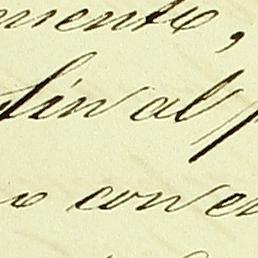 mente,
fin al p
con en